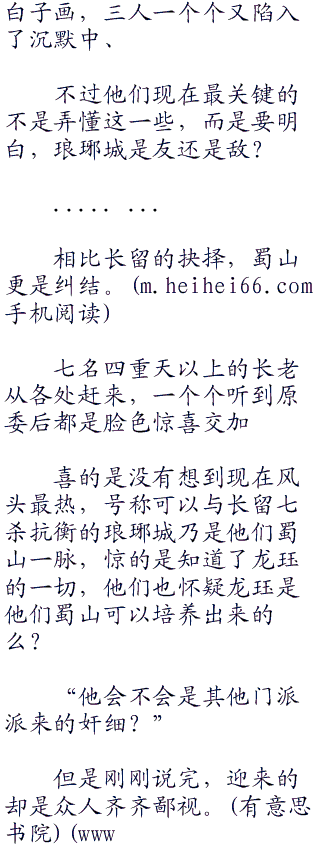 白子画，三人一个个又陷入
了沉默中、
不过他们现在最关键的
不是弄懂这一些，而是要明
白，琅琊城是友还是敌？
..... ...
相比长留的抉择，蜀山
更是纠结。(m.heihei66.com
手机阅读)
七名四重天以上的长老
从各处赶来，一个个听到原
委后都是脸色惊喜交加
喜的是没有想到现在风
头最热，号称可以与长留七
杀抗衡的琅琊城乃是他们蜀
山一脉，惊的是知道了龙珏
的一切，他们也怀疑龙珏是
他们蜀山可以培养出来的
么？
“他会不会是其他门派
派来的奸细？”
但是刚刚说完，迎来的
却是众人齐齐鄙视。(有意思
书院)(www